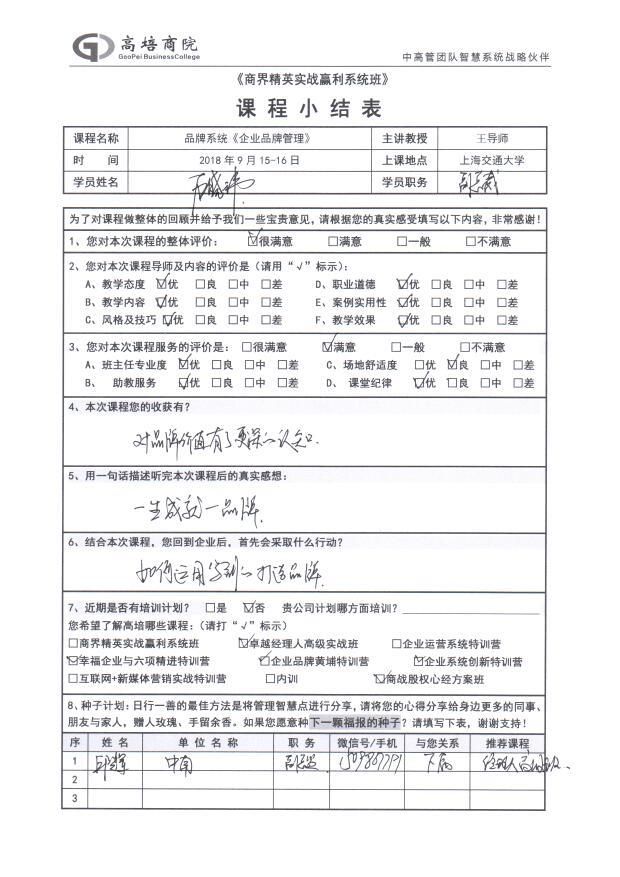 高培商院
GaoPei BusinessCollege
中高管团队智慧系统战略伙伴
《商界精英实战赢利系统班》
课程小结表
课程名称 品牌系统《企业品牌管理》 主讲教授 王导师
时 间 2018 年 9 月 15-16 日 上课地点 上海交通大学
学员姓名 学员职务
为了对课程做整体的回顾并给予我们一些宝贵意见，请根据您的真实感受填写以下内容，非常感谢！
1、您对本次课程的整体评价： ☑很满意 □满意 □一般 □不满意
2、您对本次课程导师及内容的评价是（请用“√”标示）：
A、教学态度 ☑优 □良 □中 □差 D、职业道德 ☑优 □良 □中 □差
B、教学内容 ☑优 □良 □中 □差 E、案例实用性 ☑优 □良 □中 □差
C、风格及技巧 ☑优 □良 □中 □差 F、教学效果 ☑优 □良 □中 □差
3、您对本次课程服务的评价是： □很满意 ☑满意 □一般 □不满意
A、班主任专业度 ☑优 □良 □中 □差 C、场地舒适度 □优 ☑良 □中 □差
B、 助教服务 ☑优 □良 □中 □差 D、 课堂纪律 ☑优 □良 □中 □差
4、本次课程您的收获有？
对品牌价值有了更深的认知.
5、用一句话描述听完本次课程后的真实感想：
一生成就一品牌.
6、结合本次课程，您回到企业后，首先会采取什么行动？
如何运用学到的打造品牌.
7、近期是否有培训计划？ □是 ☑否 贵公司计划哪方面培训？
您希望了解高培哪些课程：（请打“√”标示）
□商界精英实战赢利系统班 ☑卓越经理人高级实战班 □企业运营系统特训营
☑幸福企业与六项精进特训营 ☑企业品牌黄埔特训营 ☑企业系统创新特训营
□互联网+新媒体营销实战特训营 □内训 ☑商战股权心经方案班
8、种子计划：日行一善的最佳方法是将管理智慧点进行分享，请将您的心得分享给身边更多的同事、
朋友与家人，赠人玫瑰、手留余香。如果您愿意种下一颗福报的种子？请填写下表，谢谢支持！
序 姓 名 单 位 名 称 职 务 微信号/手机 与您关系 推荐课程
1 中南 下属
2
3